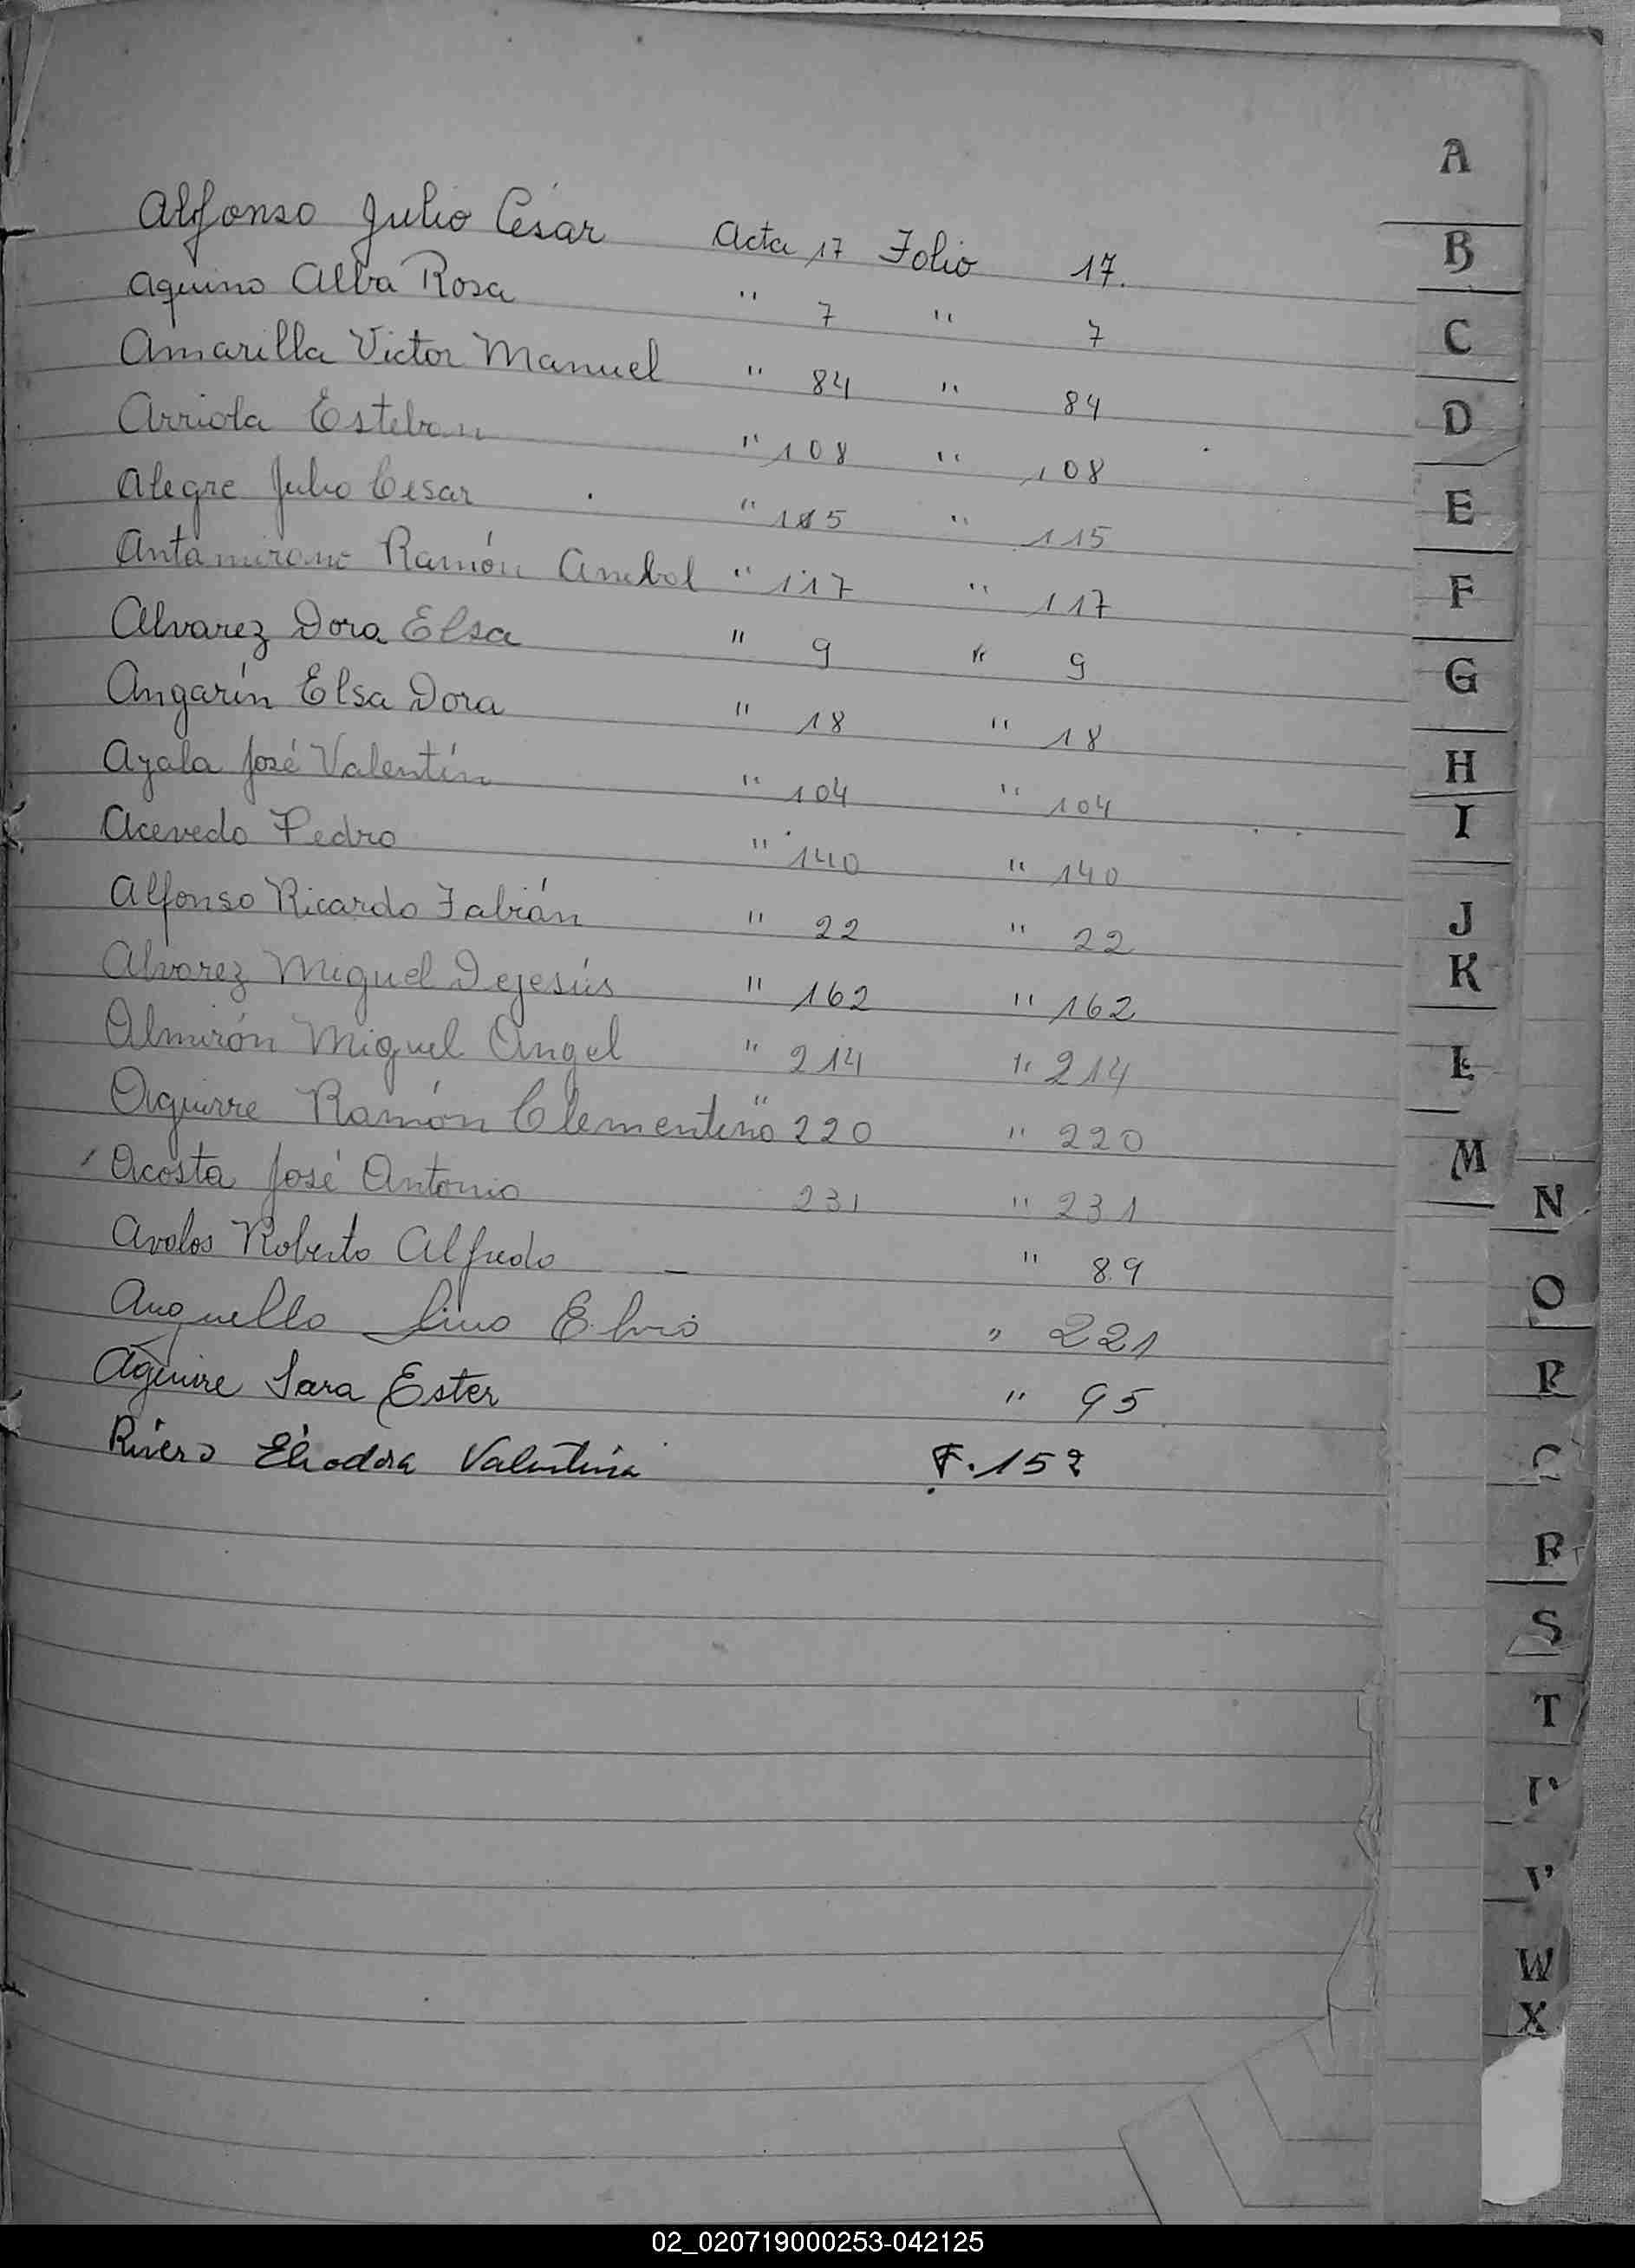 Alfonso Julio César Acta 17 Folio 17.
Aquino Alba Rosa " 7 " 7
Amarilla Victor Manuel " 84 " 84
Arriola Esteban " 108 " 108
Alegre Julio Cesar " 115 " 115
Antamirano Ramón Anibal " 117 " 117
Alvarez Dora Elsa " 9 " 9
Angarín Elsa Dora " 18 " 18
Ayala José Valentín " 104 " 104
Acevedo Pedro " 140 " 140
Alfonso Ricardo Fabián " 22 " 22
Alvarez Miguel Dejesús " 162 " 162
Almirón Miguel Angel " 214 " 214
Aguirre Ramón Clementino " 220 " 220
Acosta José Antonio 231 " 231
Avalos Roberto Alfredo — " 89
Lino Elvio " 221
Aguirre Sara Ester " 95
Rivero Eliodora Valentina F. 152
A
B
C
D
E
F
G
H
I
J
K
L
M
N
O
P
R
S
T
V
W
X
02_020719000253-042125